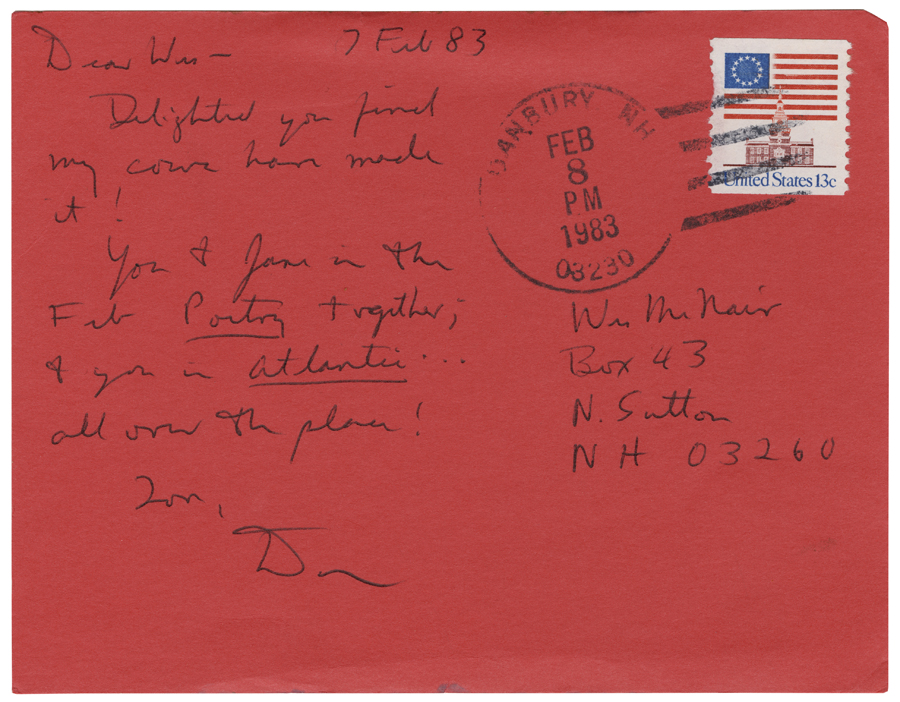 7 Feb 83
Dear Wes—
Delighted you find
my cows have made
it!
You & Jane in the
Feb Poetry together;
& you in Atlantic...
all over the place!
Love,
Don
DANBURY NH
FEB
8
PM
1983
03230
United States 13c
Wes McNair
Box 43
N. Sutton
NH 03260